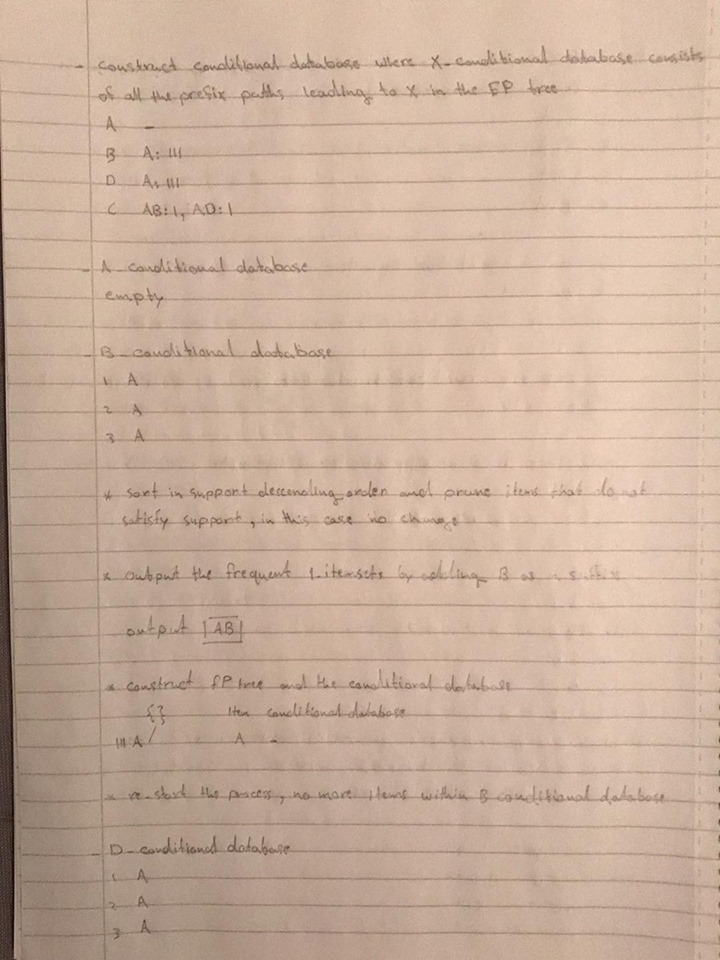 - construct conditional database where X-conditional database consists
of all the prefix paths leading to X in the FP tree
A -
B A: III
D A: III
C AB: 1, AD: 1
- A-conditional database
empty
- B-conditional database
1 A
2 A
3 A
* sort in support descending order and prune items that do not
satisfy support, in this case no change
* output the frequent 1-itemsets by adding B as a suffix
output |AB|
* construct FP tree and the conditional database
{ } Item conditional database
III A / A -
* re-start the process, no more items within B conditional database
- D-conditional database
1 A
2 A
3 A